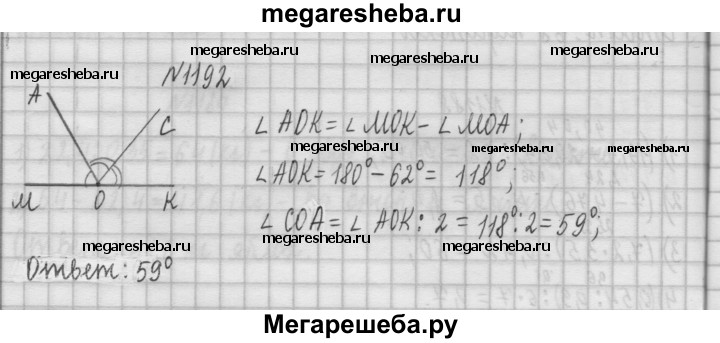 megaresheba.ru
megaresheba.ru
megaresheba.ru
megaresheba.ru
N1192
A
C
M
O
K
∠ AOK = ∠ MOK - ∠ MOA;
megaresheba.ru
megaresheba.ru
∠ AOK = 180° - 62° = 118°;
∠ COA = ∠ AOK : 2 = 118° : 2 = 59°;
megaresheba.ru
megaresheba.ru
megaresheba.ru
Ответ: 59°
Мегарешеба.ру